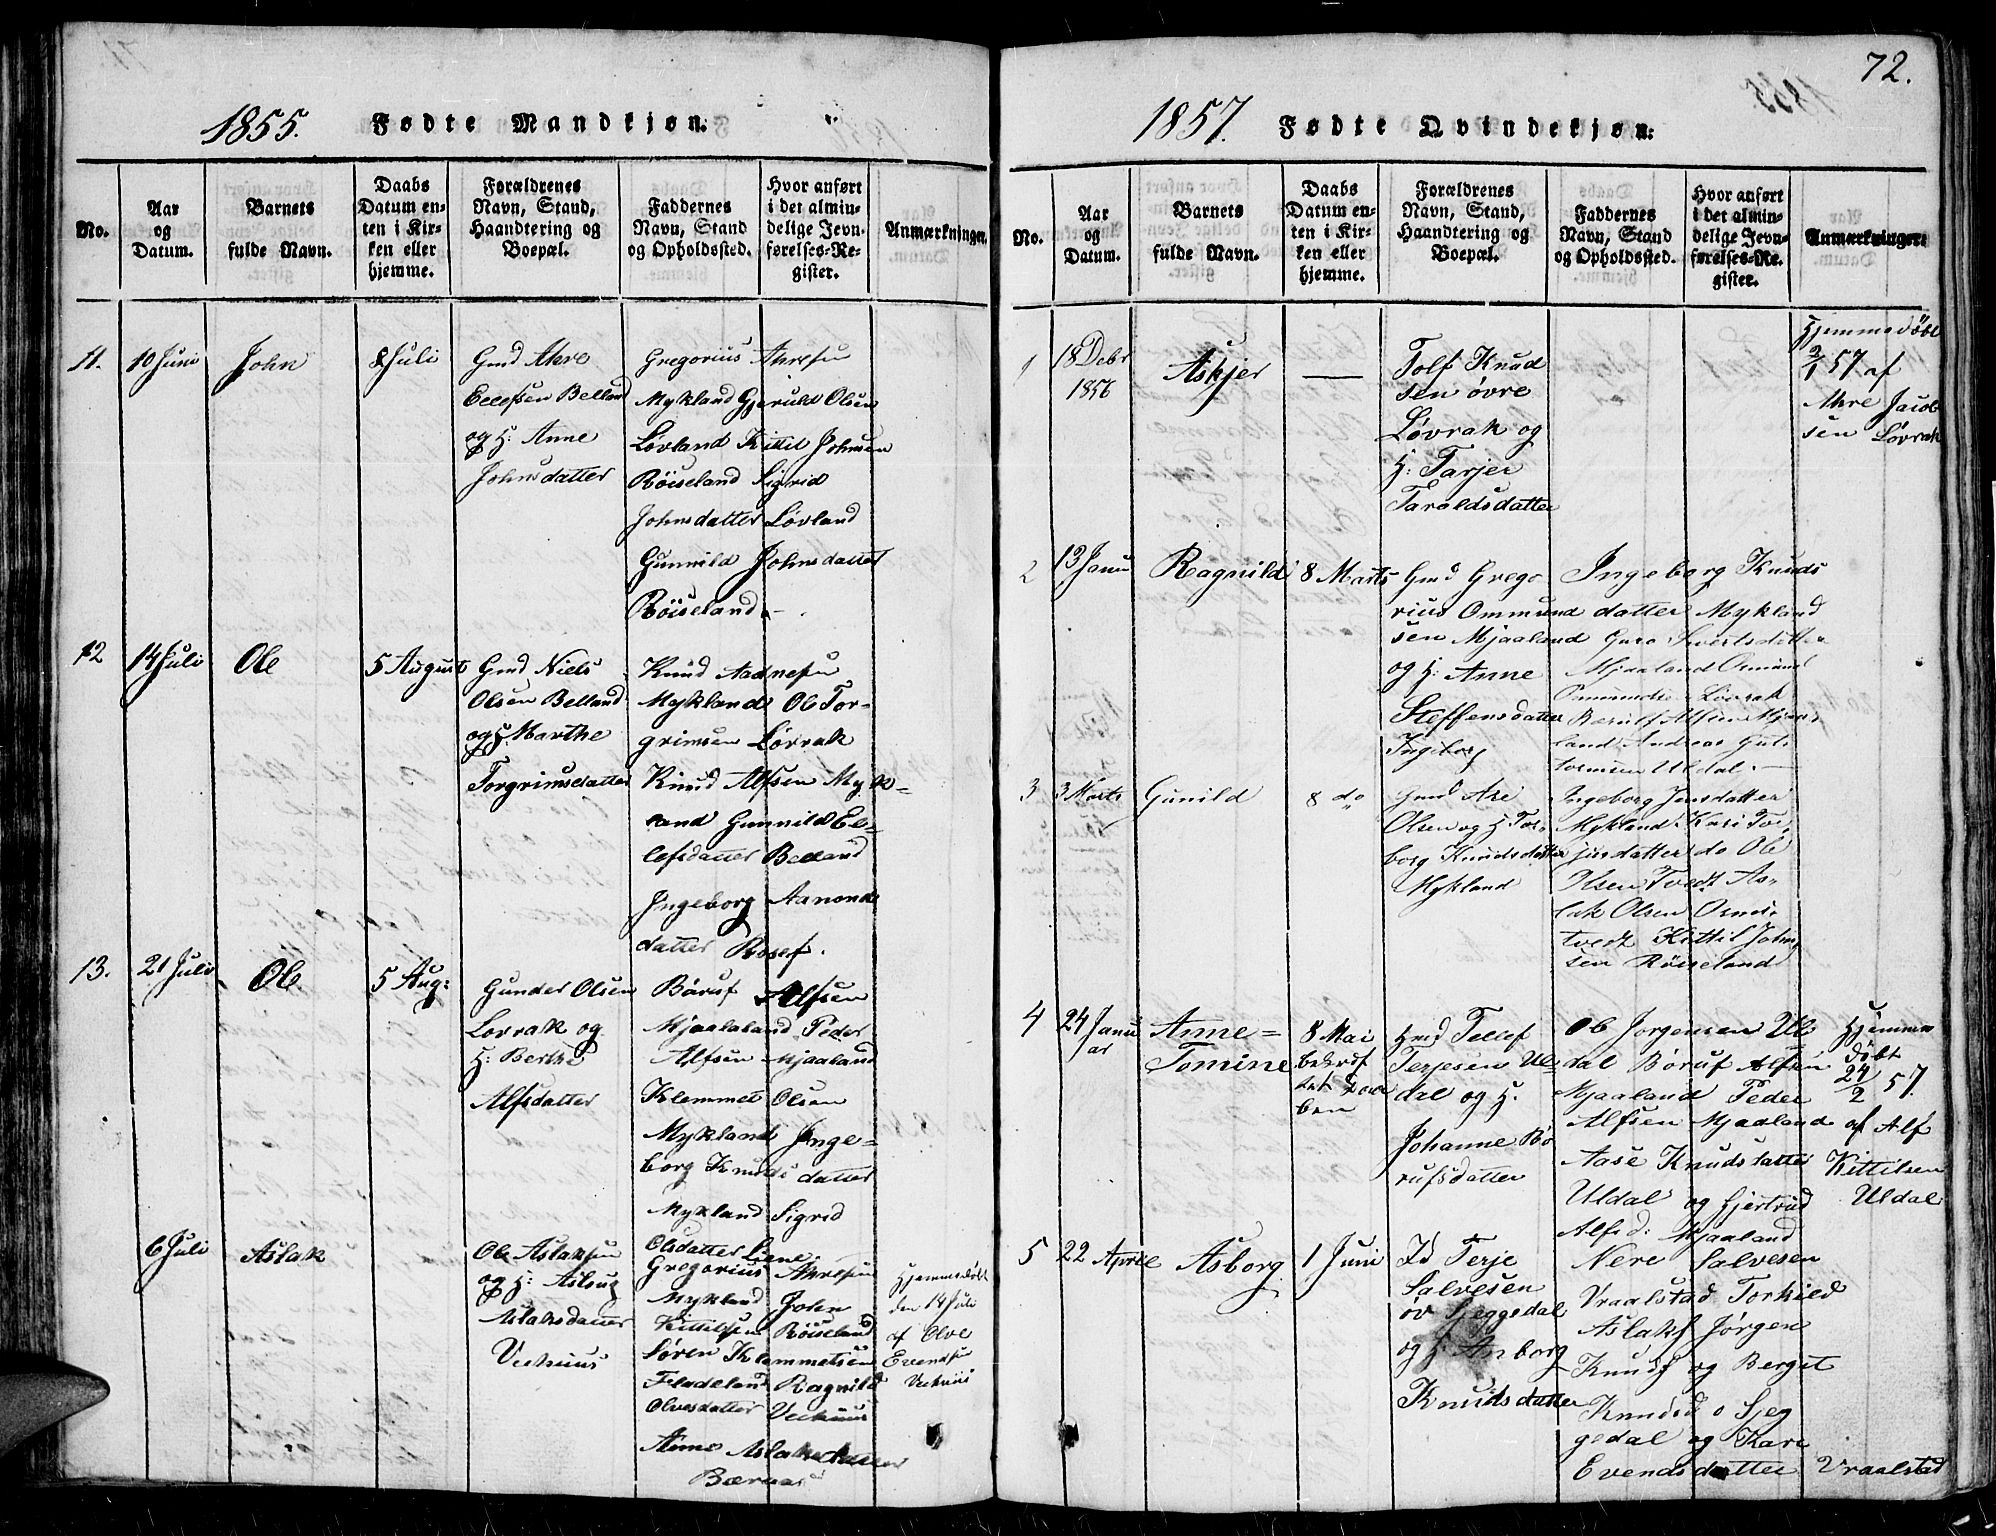 1855. Fødte Mandkjøn.
No.
Aar
og
Datum.
Barnets
fulde Navn.
Daabs
Datum en-
ten i Kir-
ken eller
hjemme.
Forældrenes
Navn, Stand,
Haandtering og
Boepæl.
Faddernes
Navn, Stand
og Opholdssted.
Hvor anført
i det almin-
delige Jevn-
førelses-Re-
gister.
Anmærkninger.
11. 10 Juni John 8 Juli
Gmd Ahre
Ellefsen Belland
og H: Anne
Johnsdatter
Gregorius Ahresen
Mykland Gjeruld Olsen
Lovland Kittil Johnsen
Röiseland Sigrid
Johnsdatter Lövland
Gunnild Johnsdatter
Röiseland. -
12 14 Juli Ole 5 August
Gmd Niels
Olsen Belland
og H. Marthe
Torgrimsdatter
Knud Aadnesen
Mykland Ole Tor-
grimsen Lövrak
Knud Alfsen Myk-
land Gunnild El-
lefsdatter Belland
Ingeborg Aanonds
datter Rosef.
13. 21 Juli Ole 5 Aug:
Gunder Olsen
Lovrak og
H: Berthe
Alfsdatter
Böruf Alfsen
Mjaaland Peder
Alfsen Mjaaland
Klemmet Olsen
Mykland Inge=
borg Knuds datter
Mykland Sigrid
Olsdatter Liene
6 Juli Aslak
Ole Aslaksen
og H: Aslaug
Aslaksdatter
Vehuus
Gregorius Ahresen
Mykland John
Kittilsen Röiseland
Sören Klemmetsen
Fladeland Ragnild
Olvesdatter Vehuus
Anne Aslaksdatter
Hjemmedöbt
den 14 Juli
af Olve
Evendsen
Vehuus
72.
1857. Fødte Qvindekjøn.
No.
Aar
og
Datum.
Barnets
fulde Navn.
Daabs
Datum en-
ten i Kir-
ken eller
hjemme.
Forældrenes
Navn, Stand,
Haandtering og
Boepæl.
Faddernes
Navn, Stand
og Opholdssted.
Hvor anført
i det almin-
delige Jevn-
førelses-Re-
gister.
Anmærkninger.
1 18 Debr
1856
Askjer —
Tolf Knud
sen övre
Lövrak og
H: Tarjer
Taraldsdatter
Hjemmedöbt
2/1 57 af
Ahre Jacob
sen Lövrak
2 13 Janu Ragnild 8 Marts
Gmd Grego
rius Ommund
sen Mjaaland
og H: Anne
Steffensdatter
Ingeborg
Ingeborg Knuds
datter Mykland
Guro Sivertsdatter
Mjaaland Osmund
Lövrak
Böruf Alfsen Mjaa
land Andreas Gut
tormsen Uldal. —
3 3 Marts Gunild 8 do
Gmd Are
Olsen og H Tor-
borg Knudsdatter
Mykland
Ingeborg Jensdatter
Mykland Kari Tor-
jusdatter do Ole
Olsen Tvedt As-
lak Olsen Osmis-
tvedt Kittil John
sen Röiseland
4 24 Janu
ar
Anne=
Tomine
8 Mai
bekræf
tet Daa
ben
Gmd Tellef
Terjesen Ul
dal og H.
Johanne Bö
rufsdatter
Ole Jorgensen Ul
dal Böruf Alfsen
Mjaaland Peder
Alfsen Mjaaland
Aase Knudsdatter
Uldal og Gjertrud
Alfsd: Mjaaland
Hjemme
döbt
24/2 57.
af Alf
Kittilsen
Uldal
5 22 April Asborg 1 Juni
Id Terje
Salvesen
öv Sjeggedal
og H: Anborg
Knudsdatter
Nere Salvesen
Vraalstad Torkild
Aslaks Jörgen
Knuds og Berget
Knudsd o Sjeg
gedal og Kari
Evendsdatter Vraalstad